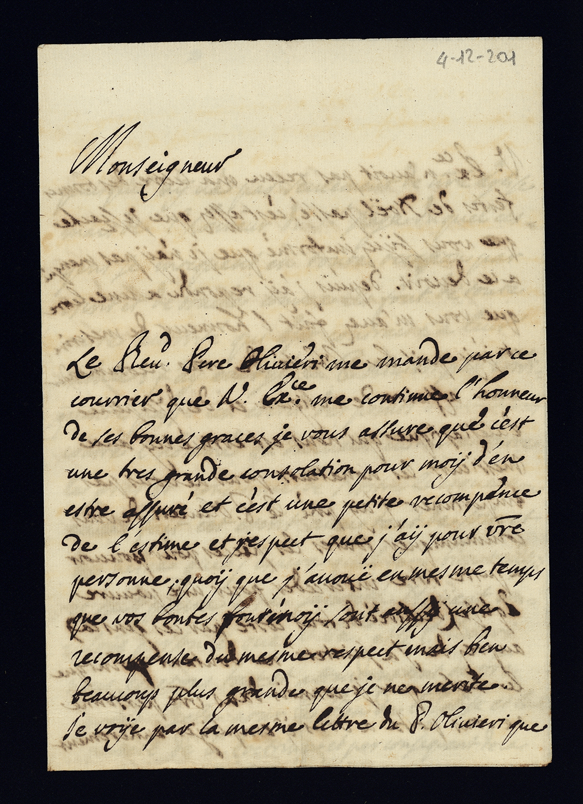 4-12-201
Monseigneur
Le Reud. Pere Oliuiéri me mande par ce
courrier que V. Exce. me continue l'honneur
de ses bonnes graces je vous assure que c'est
une tres grande consolation pour moij d'en
estre assuré et c'est une petite recompence
de l'estime et respect que j'aij pour vre
personne, quoij que j'auouë en mesme temps
que vos bontes pour moij sont aussij une
recompense du mesme respect mais bien
beaucoup plus grande que je ne merite.
Je voije par la mesme lettre du P. Oliuieri que